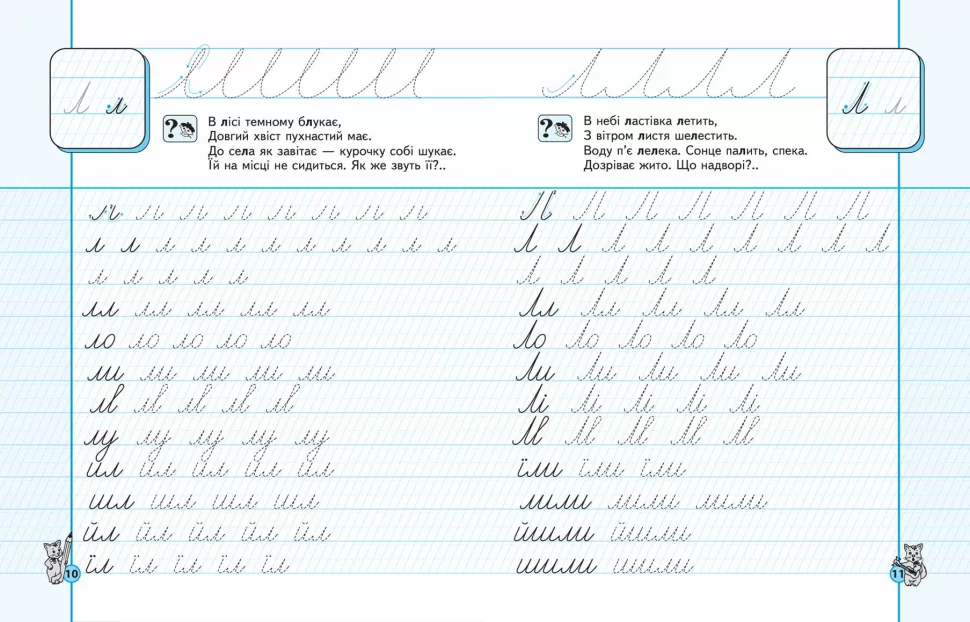 Л л
В лісі темному блукає,
Довгий хвіст пухнастий має.
До села як завітає — курочку собі шукає.
Їй на місці не сидиться. Як же звуть її?..
л л л л л л л л л л
л л л л л
лл лл лл лл лл
ло ло ло ло ло
ли ли ли ли ли
лу лу лу лу лу
ил ил ил ил ил
шл шл шл шл
йл йл йл йл йл
їл їл їл їл їл
10
Л л
В небі ластівка летить,
З вітром листя шелестить.
Воду п’є лелека. Сонце палить, спека.
Дозріває жито. Що надворі?..
Л Л Л Л Л Л Л Л Л
Л Л Л Л Л
Лл Лл Лл Лл Лл
Ло Ло Ло Ло Ло
Ли Ли Ли Ли Ли
Лі Лі Лі Лі Лі
їли їли їли
мили мили мили
йшли йшли
шили шили
11